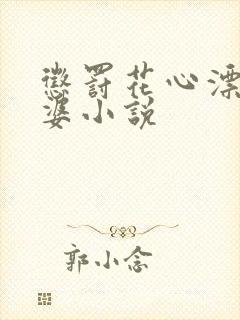 懲罰花心漂
婆小說
郭小念